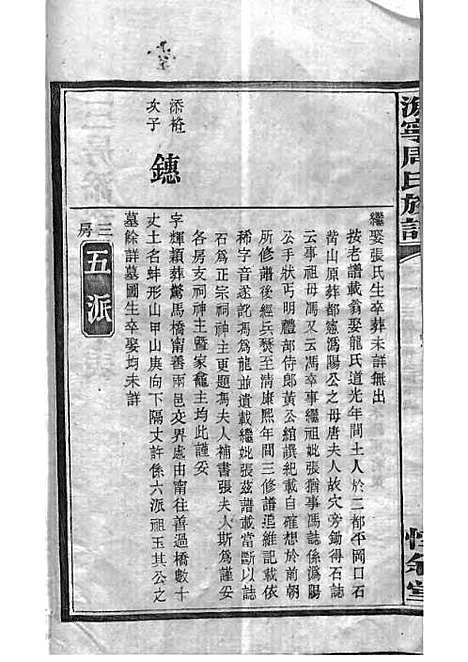 繼娶張氏生卒葬未詳無出
按老譜載翁娶龍氏道光年間土人於二都平岡口石
山原葬都憲溈陽公之母唐夫人故穴旁鋤得石誌
云事祖母馮夫人又云馮卒事繼祖妣張猶事馮誌係溈陽
公手狀丐明禮部侍郎黃公綰譔紀載自確想於前朝
所修譜後經兵燹至清康熙年間三修譜追維記載依
稀字音遂訛馮爲龍並遺載繼妣張茲譜載當斷以誌
石爲正宗祠神主更題馮夫人補書張夫人斯爲謹妥
各房支祠神主暨家龕主均此謹妥
添裿
次子
鏸
字輝穎葬鶯馬橋甯善兩邑交界處由甯往善過橋數十
丈土名蚌形山甲山庚向下隔丈許係六派祖玉其公之
墓餘詳墓圖生卒娶均未詳
三房
五派
周氏族譜